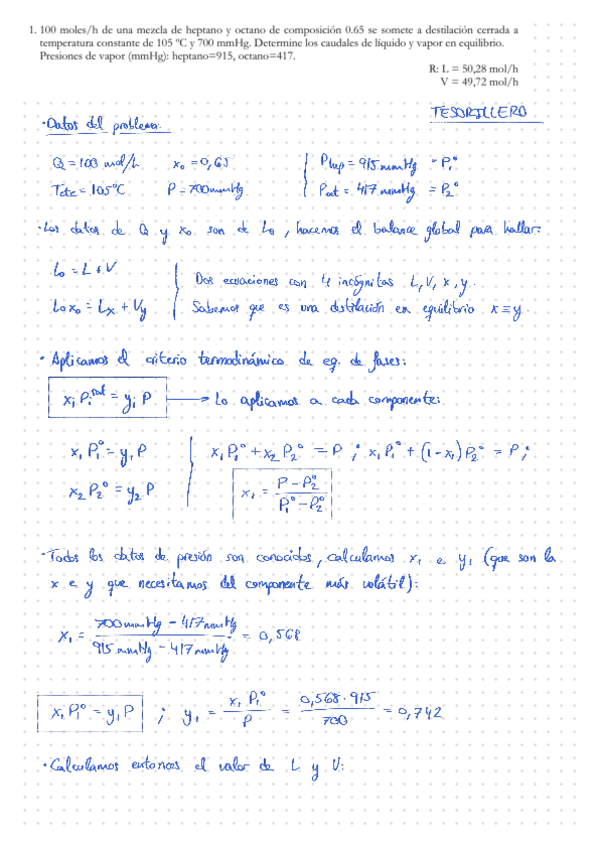 1. 100 moles/h de una mezcla de heptano y octano de composición 0.65 se somete a destilación cerrada a
temperatura constante de 105 ºC y 700 mmHg. Determine los caudales de líquido y vapor en equilibrio.
Presiones de vapor (mmHg): heptano=915, octano=417.
R: L = 50,28 mol/h
V = 49,72 mol/h
TESORILLERO
· Datos del problema:
Q = 100 mol/h x₀ = 0,65 Phep = 915 mmHg = P₁°
Tcte = 105°C P = 700 mmHg Poct = 417 mmHg = P₂°
· Los datos de Q y x₀ son de L₀, hacemos el balance global para hallar:
L₀ = L + V
Dos ecuaciones con 4 incógnitas L, V, x, y.
L₀x₀ = Lx + Vy Sabemos que es una destilación en equilibrio x ≡ y.
· Aplicamos el criterio termodinámico de eq. de fases:
xᵢ Pᵢˢᵃᵗ = yᵢ P → Lo aplicamos a cada componente:
x₁ P₁° = y₁ P x₁ P₁° + x₂ P₂° = P ; x₁ P₁° + (1 - x₁) P₂° = P ;
x₂ P₂° = y₂ P x₁ = P - P₂° / P₁° - P₂°
· Todos los datos de presión son conocidos, calculamos x₁ e y₁ (que son la
x e y que necesitamos del componente más volátil):
x₁ = 700 mmHg - 417 mmHg / 915 mmHg - 417 mmHg = 0,568
x₁ P₁° = y₁ P ; y₁ = x₁ P₁° / P = 0,568 · 915 / 700 = 0,742
· Calculamos entonces el valor de L y V: